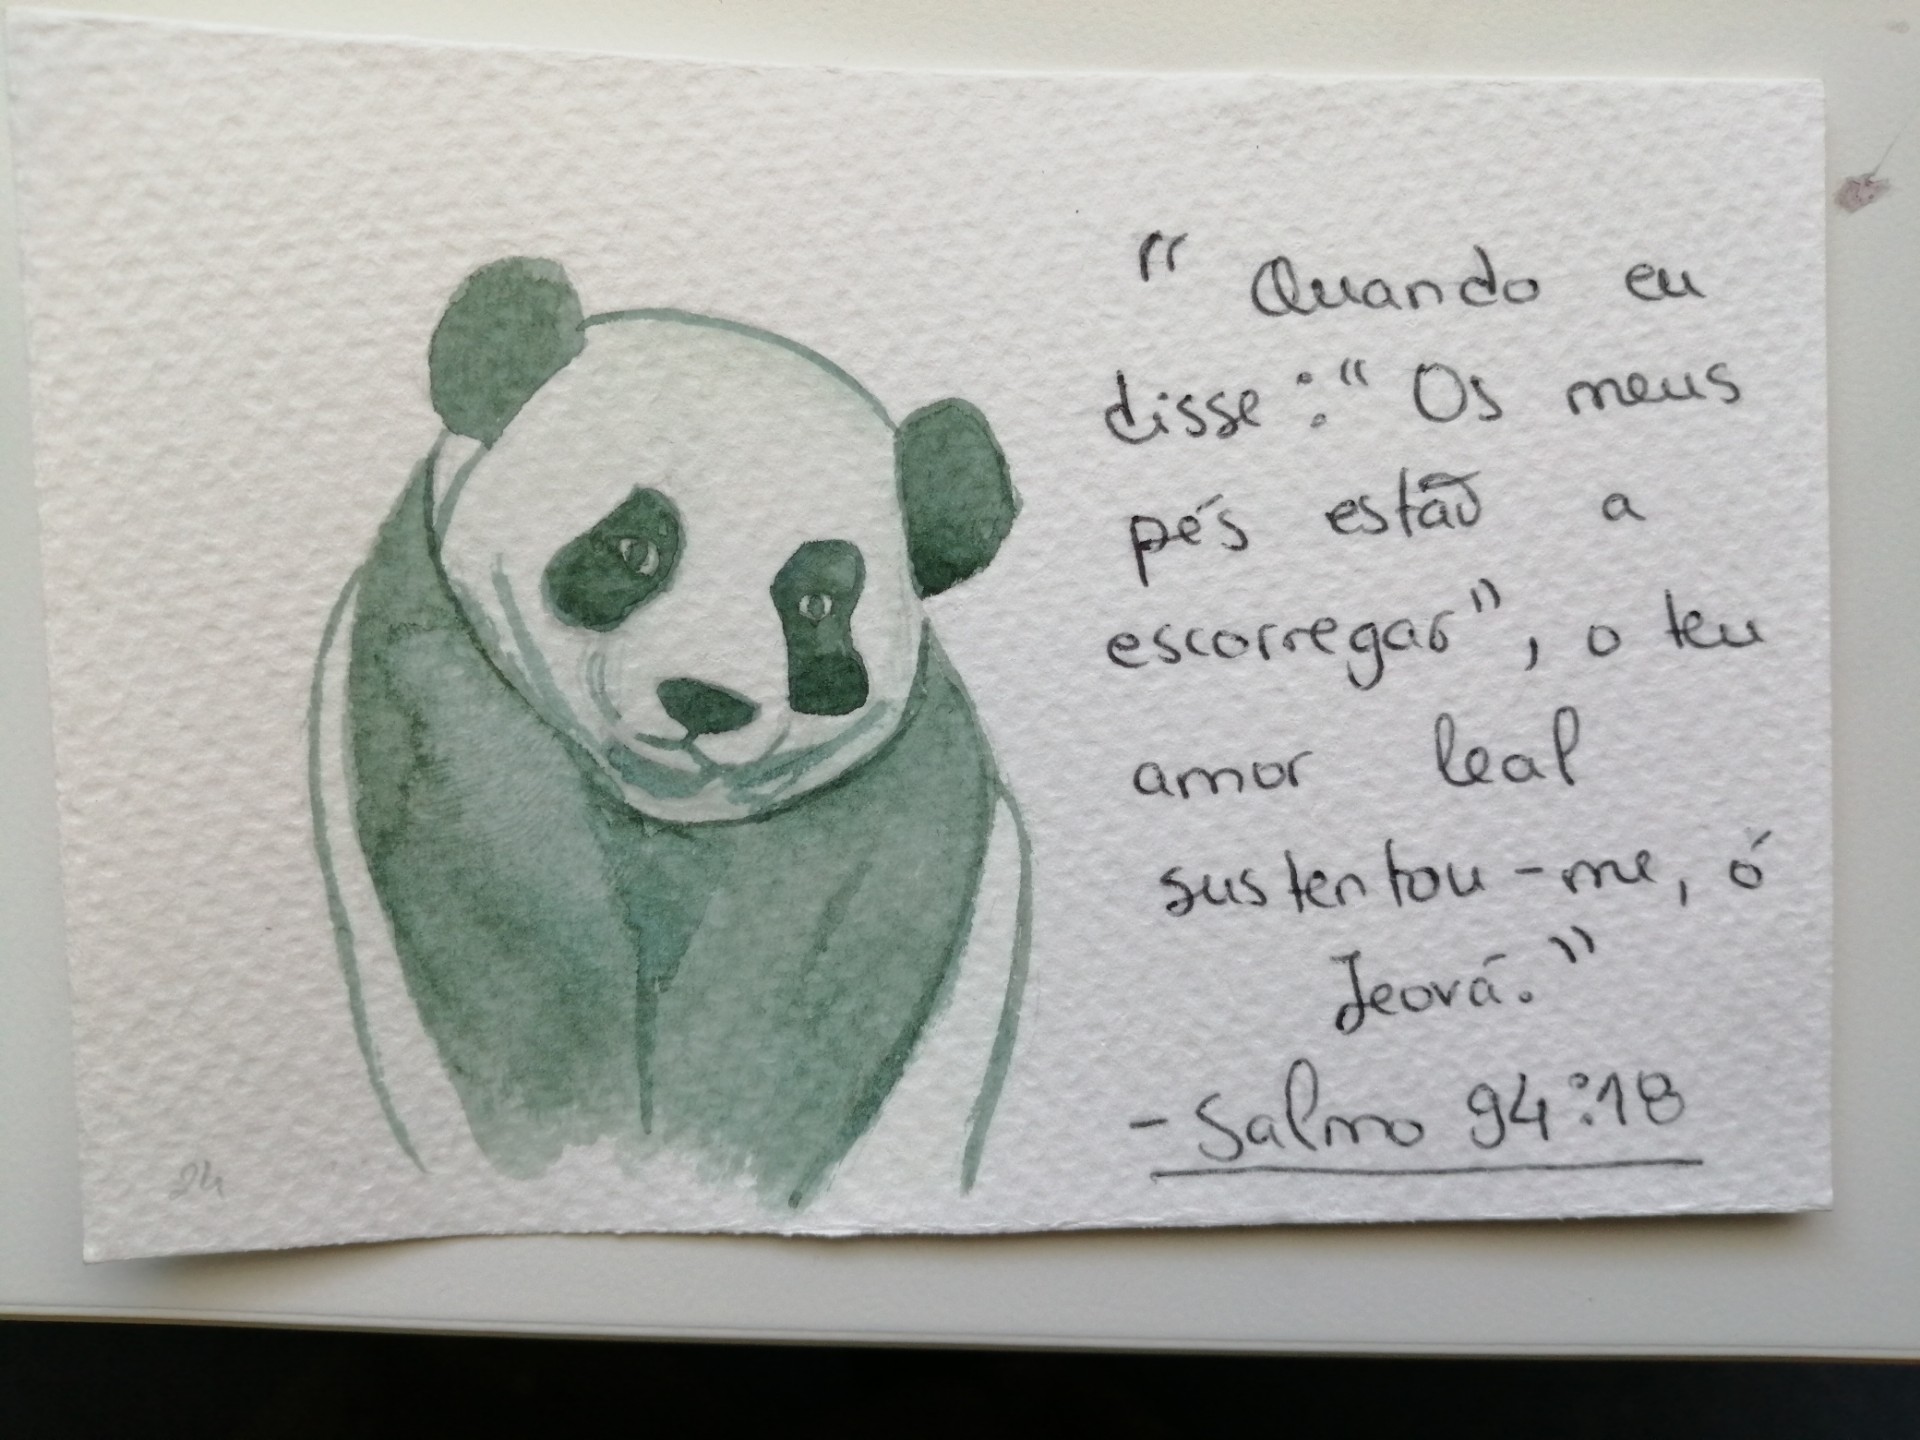 “ Quando eu
disse : “ Os meus
pés estão a
escorregar”, o teu
amor leal
sustentou-me, ó
Jeová.”
- Salmo 94:18